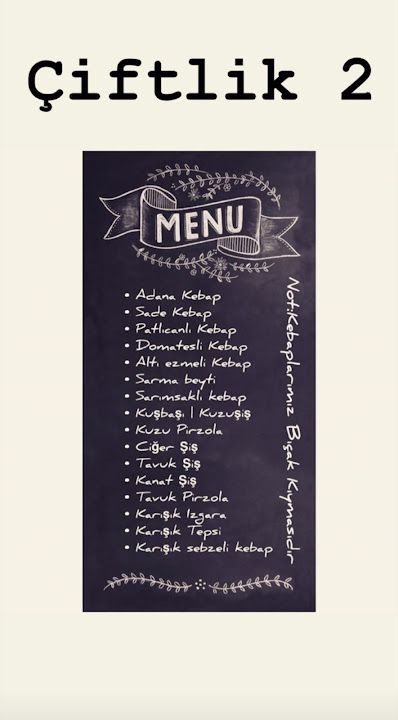 Çiftlik 2
MENU
• Adana Kebap
• Sade Kebap
• Patlıcanlı Kebap
• Domatesli Kebap
• Altı ezmeli Kebap
• Sarma beyti
• Sarımsaklı kebap
• Kuşbaşı | Kuzuşiş
• Kuzu Pirzola
• Ciğer Şiş
• Tavuk Şiş
• Kanat Şiş
• Tavuk Pirzola
• Karışık Izgara
• Karışık Tepsi
• Karışık sebzeli kebap
Not:Kebaplarımız Bıçak Kıymasıdır